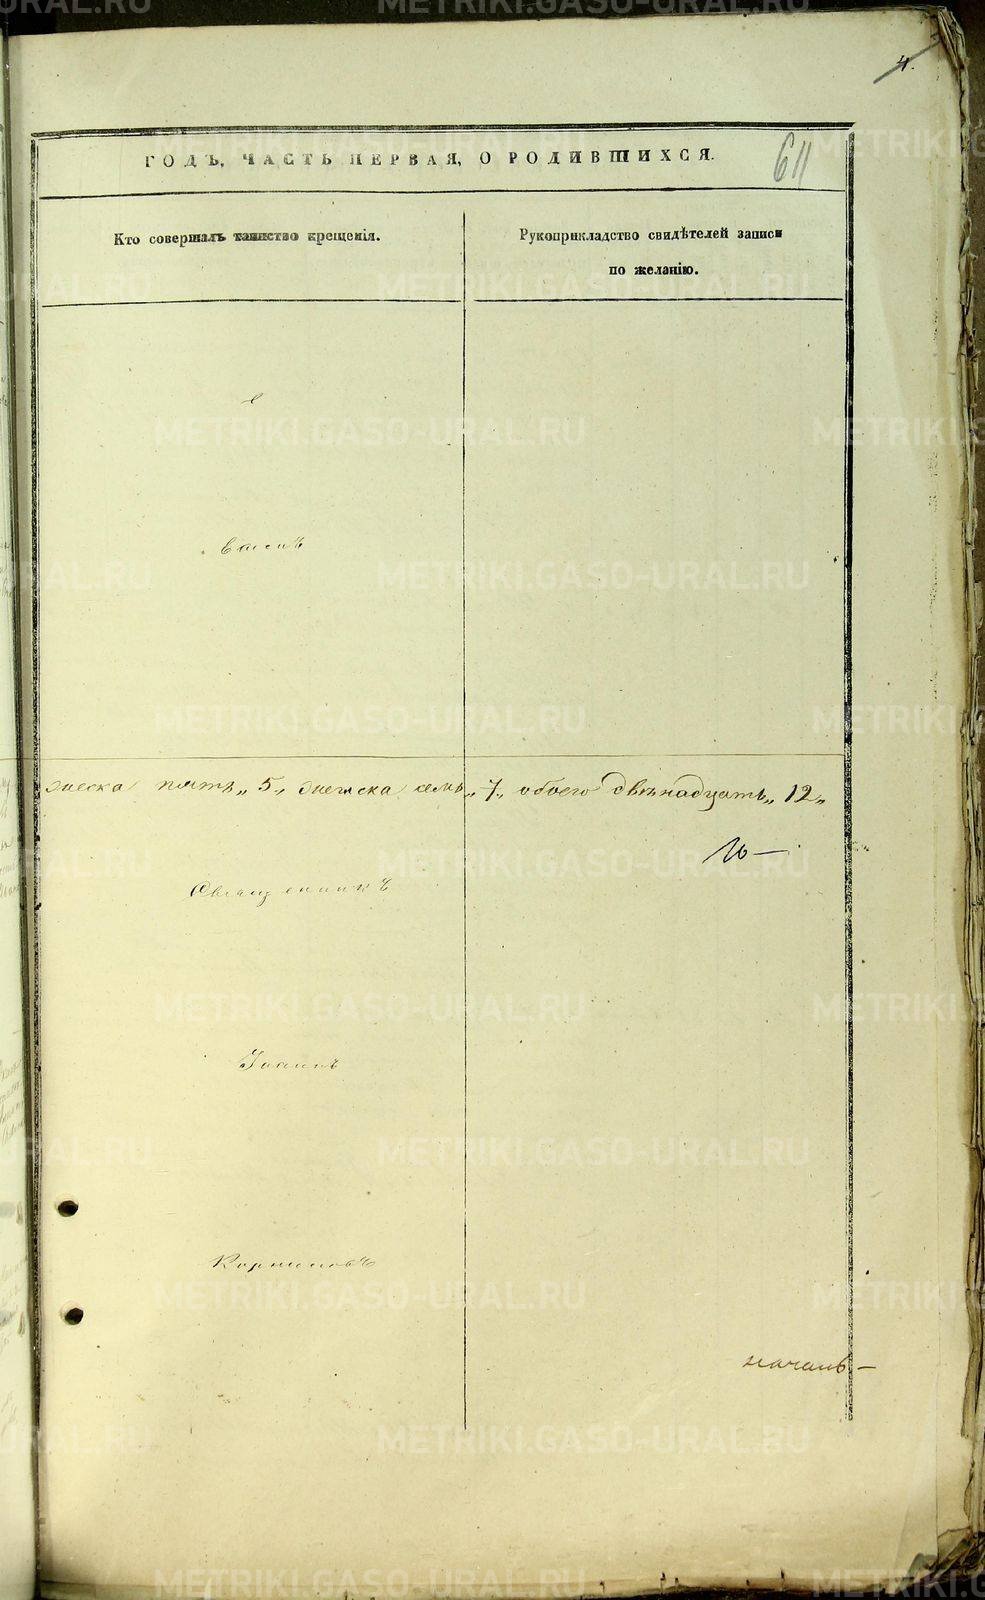 4.
ГОДЪ, ЧАСТЬ ПЕРВАЯ, О РОДИВШИХСЯ.
611
Кто совершалъ таинство крещенія.
Рукоприкладство свидѣтелей записи
по желанію.
пять„ 5„ женска семь„ 7„ обоего двѣнадцать„ 12„
Священникъ
Іоаннъ
METRIKI.GASO-URAL.RU